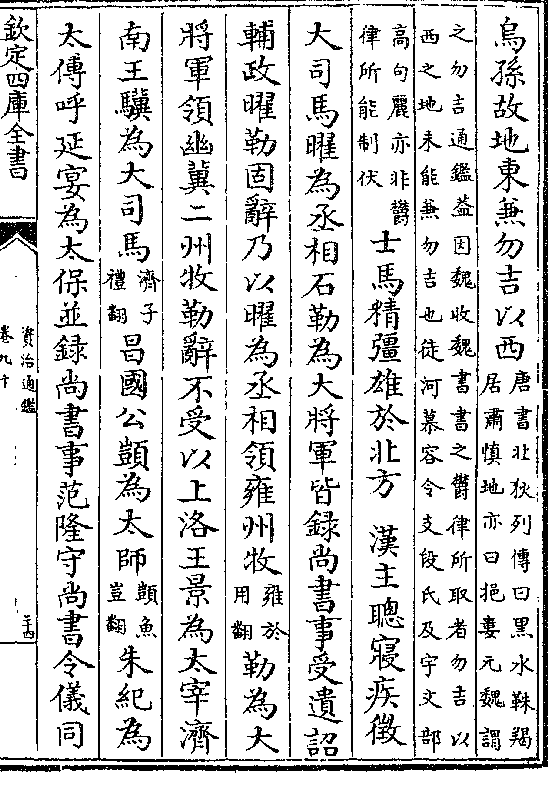 烏孫故地東兼勿吉以西唐書北狄列傳曰黑水靺羯
居肅慎地亦曰挹婁元魏謂
之勿吉通鑑葢因魏收魏書書之鬱律所取者勿吉以
西之地未能兼勿吉也徒河慕容令支段氏及宇文部
高句麗亦非鬱
律所能制伏士馬精彊雄於北方 漢主聰寢疾徵
大司馬曜為丞相石勒為大將軍皆錄尚書事受遺詔
輔政曜勒固辭乃以曜為丞相領雍州牧雍於
用翻勒為大
將軍領幽冀二州牧勒辭不受以上洛王景為太宰濟
南王驥為大司馬濟子
禮翻昌國公顗為太師顗魚
豈翻朱紀為
太傅呼延宴為太保並錄尚書事范隆守尚書令儀同
欽定四庫全書
資治通鑑
卷九十
二十四